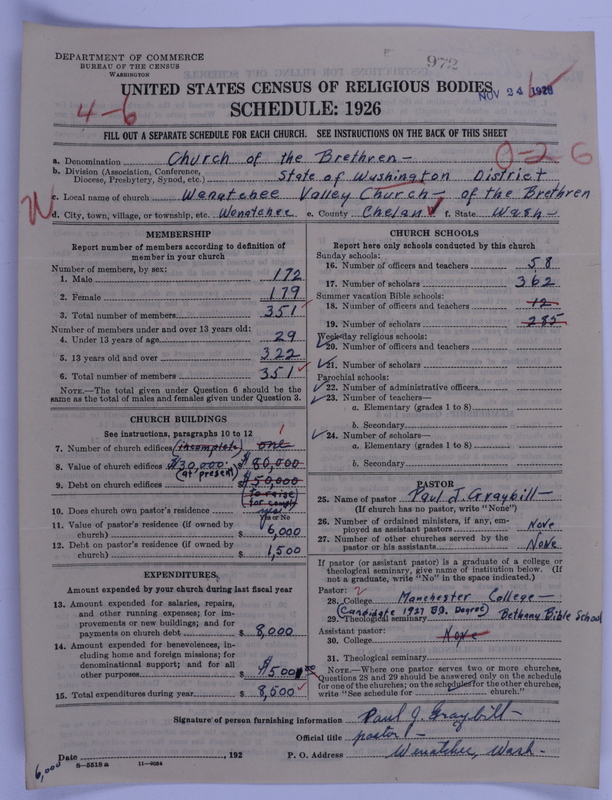 DEPARTMENT OF COMMERCE
BUREAU OF THE CENSUS
WASHINGTON
972
UNITED STATES CENSUS OF RELIGIOUS BODIES
NOV 24 1928
SCHEDULE: 1926
4-6
FILL OUT A SEPARATE SCHEDULE FOR EACH CHURCH. SEE INSTRUCTIONS ON THE BACK OF THIS SHEET
0-26
a. Denomination Church of the Brethren -
b. Division (Association, Conference, Diocese, Presbytery, Synod, etc.) State of Washington District
c. Local name of church Wenatchee Valley Church - of the Brethren
W
d. City, town, village, or township, etc. Wenatchee e. County Chelan f. State Wash-
MEMBERSHIP
Report number of members according to definition of
member in your church
Number of members, by sex:
1. Male 172
2. Female 179
3. Total number of members 351
Number of members under and over 13 years old:
4. Under 13 years of age 29
5. 13 years old and over 322
6. Total number of members 351
NOTE.—The total given under Question 6 should be
same as the total of males and females given under Question 3.
CHURCH BUILDINGS
See instructions, paragraphs 10 to 12
1
7. Number of church edifices (incomplete) one
8. Value of church edifices $30,000. $80,000
(at present)
9. Debt on church edifices $50,000
(to raise)
10. Does church own pastor's residence yes
Yes or No
11. Value of pastor's residence (if owned by
church) $6,000
12. Debt on pastor's residence (if owned by
church) $1,500
EXPENDITURES
Amount expended by your church during last fiscal year
13. Amount expended for salaries, repairs,
and other running expenses; for im-
provements or new buildings; and for
payments on church debt $8,000
14. Amount expended for benevolences, in-
cluding home and foreign missions; for
denominational support; and for all
other purposes $500
15. Total expenditures during year $8,500
CHURCH SCHOOLS
Report here only schools conducted by this church
Sunday schools:
16. Number of officers and teachers 58
17. Number of scholars 362
Summer vacation Bible schools:
18. Number of officers and teachers 12
19. Number of scholars 285
Week-day religious schools:
20. Number of officers and teachers
21. Number of scholars
Parochial schools:
22. Number of administrative officers
23. Number of teachers—
a. Elementary (grades 1 to 8)
b. Secondary
24. Number of scholars—
a. Elementary (grades 1 to 8)
b. Secondary
PASTOR
25. Name of pastor Paul J. Graybill -
(If church has no pastor, write "None")
26. Number of ordained ministers, if any, em-
ployed as assistant pastors None
27. Number of other churches served by the
pastor or his assistants None
If pastor (or assistant pastor) is a graduate of a college or
theological seminary, give name of institution below. (If
not a graduate, write "No" in the space indicated.)
Pastor:
28. College Manchester College -
(Candidate 1927 BD. Degree)
29. Theological seminary Bethany Bible School
Assistant pastor:
30. College None
31. Theological seminary
NOTE.—Where one pastor serves two or more churches,
Questions 28 and 29 should be answered only on the schedule
for one of the churches; on the schedules for the other churches,
write "See schedule for church."
Signature of person furnishing information Paul J. Graybill -
Official title pastor -
Date , 192 P. O. Address Wenatchee, Wash.
6,000
8-5518 a 11-9054